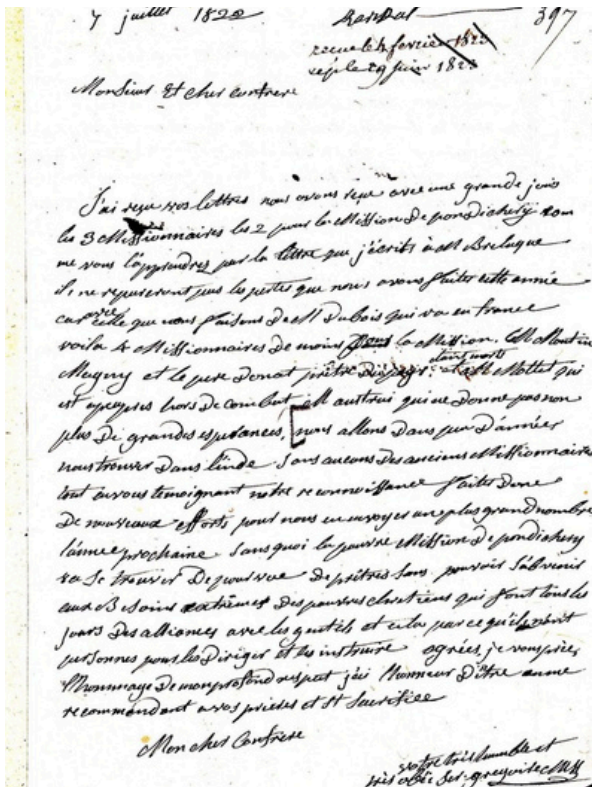 7 juillet 1822 Karikal 397
recue le 4 fevrier 1823
rep le 29 juin 1823
Monsieur Et cher confrere
J'ai reçu vos lettres nous avons reçu avec une grande joie
les 3 Missionnaires les 2 pour la Mission De pondichery com
me vous l'apprendrez par la lettre que j'écrits à M Breluque
ils ne repareront pas les pertes que nous avons faites cette année
car avec celle que nous faisons De M Dubois qui va en france
voila 4 Missionnaires De moins pour la Mission. M
Mageny et le pere Donat prêtre Du étant morts et M Mottet qui
est apeupres hors De combat M austrui qui ne Donne pas non
plus De grandes esperances, [nous allons Dans peu D'année
nous trouver Dans l'inde Sans aucuns Des anciens Missionnaires
tout en vous temoignant notre reconnoissance faites Donc
De nouveaux efforts pour nous en envoyer un plus grand nombre
l'année prochaine Sans quoi la pauvre Mission De pondichery
va Se trouver Depourvue De prêtres Sans pouvoir Subvenir
aux Besoins extrêmes Des pauvres chretiens qui font tous les
jours Des alliances avec les gentils et cela parce qu'ils n'ont
personnes pour les Diriger et les instruire agréez, je vous prie,
l'hommage De mon profond respect j'ai l'honneur D'être en me
recommandant a vos prieres et St Sacrifice
Mon cher Confrere
votre très humble et
très obéis Ser. gregoire